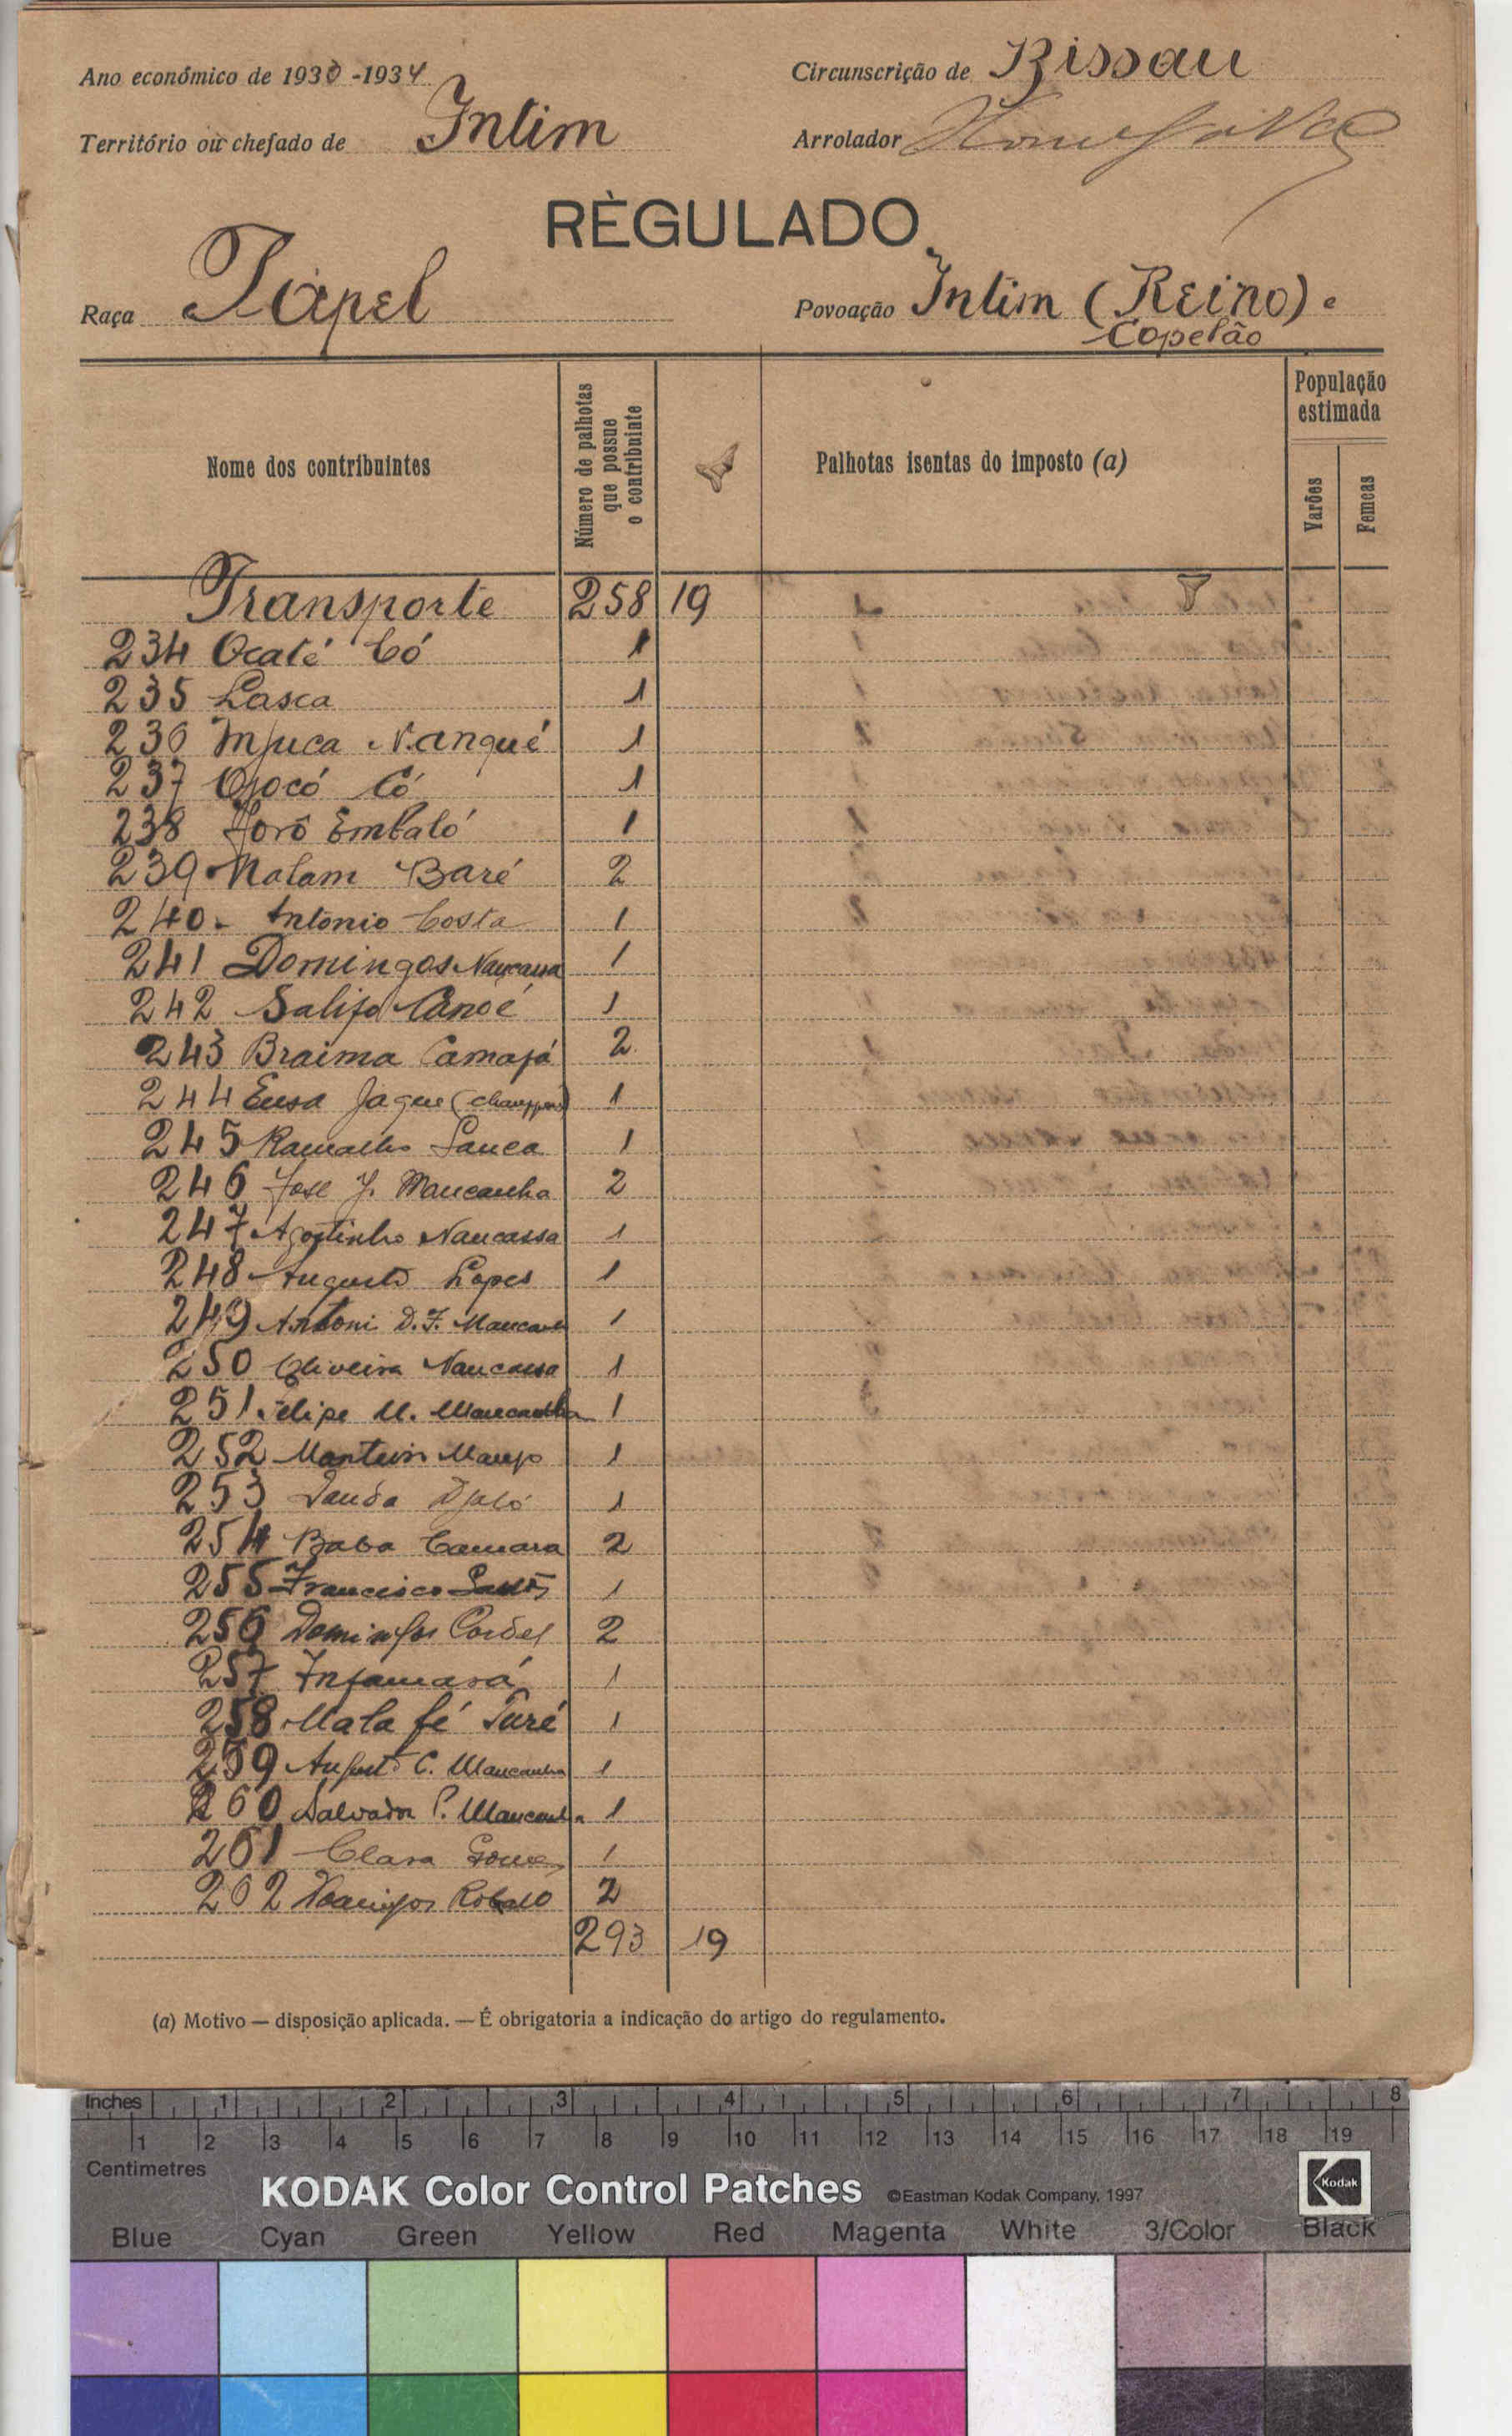 Ano económico de 1930-1934
Circunscrição de Bissau
Território ou chefado de Intim
Arrolador
RÈGULADO
Raça Papel
Povoação Intim (Reino) e
Copelão
Nome dos contribuintes
Número de palhotas que possue o contribuinte
Palhotas isentas do imposto (a)
População estimada
Varões
Femeas
Transporte 258 19
234 Ocaté Có 1
235 Lasca 1
236 Mjuca Nanqué 1
237 Ojocó Có 1
238 Joró Embaló 1
239 Malam Baré 2
240- António Costa 1
241 Domingos Naucassa 1
242 Salifo Canoé 1
243 Braima Camajá 2
244 Eusa Jaque 1
245 Ramalho Sanca 1
246 José J. Mancanha 2
247 Agostinho Naucassa 1
248 Augusto Lopes 1
249 Antoni D. F. 1
250 Oliveira Naucassa 1
251 Felipe M. Mancanha 1
252 Monteiro 1
253 Dauda Djaló 1
254 Baba Camara 2
255 Francisco 1
256 Domingos 2
257 Infamará 1
258 Mala fé Turé 1
259 August C. Mancanha 1
260 Salvador P. Mancanha 1
261 Clara Gomes 1
262 Domingos Robalo 2
293 19
(a) Motivo — disposição aplicada. — É obrigatoria a indicação do artigo do regulamento.
Inches 1 2 3 4 5 6 7 8
1 2 3 4 5 6 7 8 9 10 11 12 13 14 15 16 17 18 19
Centimetres
KODAK Color Control Patches ©Eastman Kodak Company, 1997 Kodak
Blue Cyan Green Yellow Red Magenta White 3/Color Black